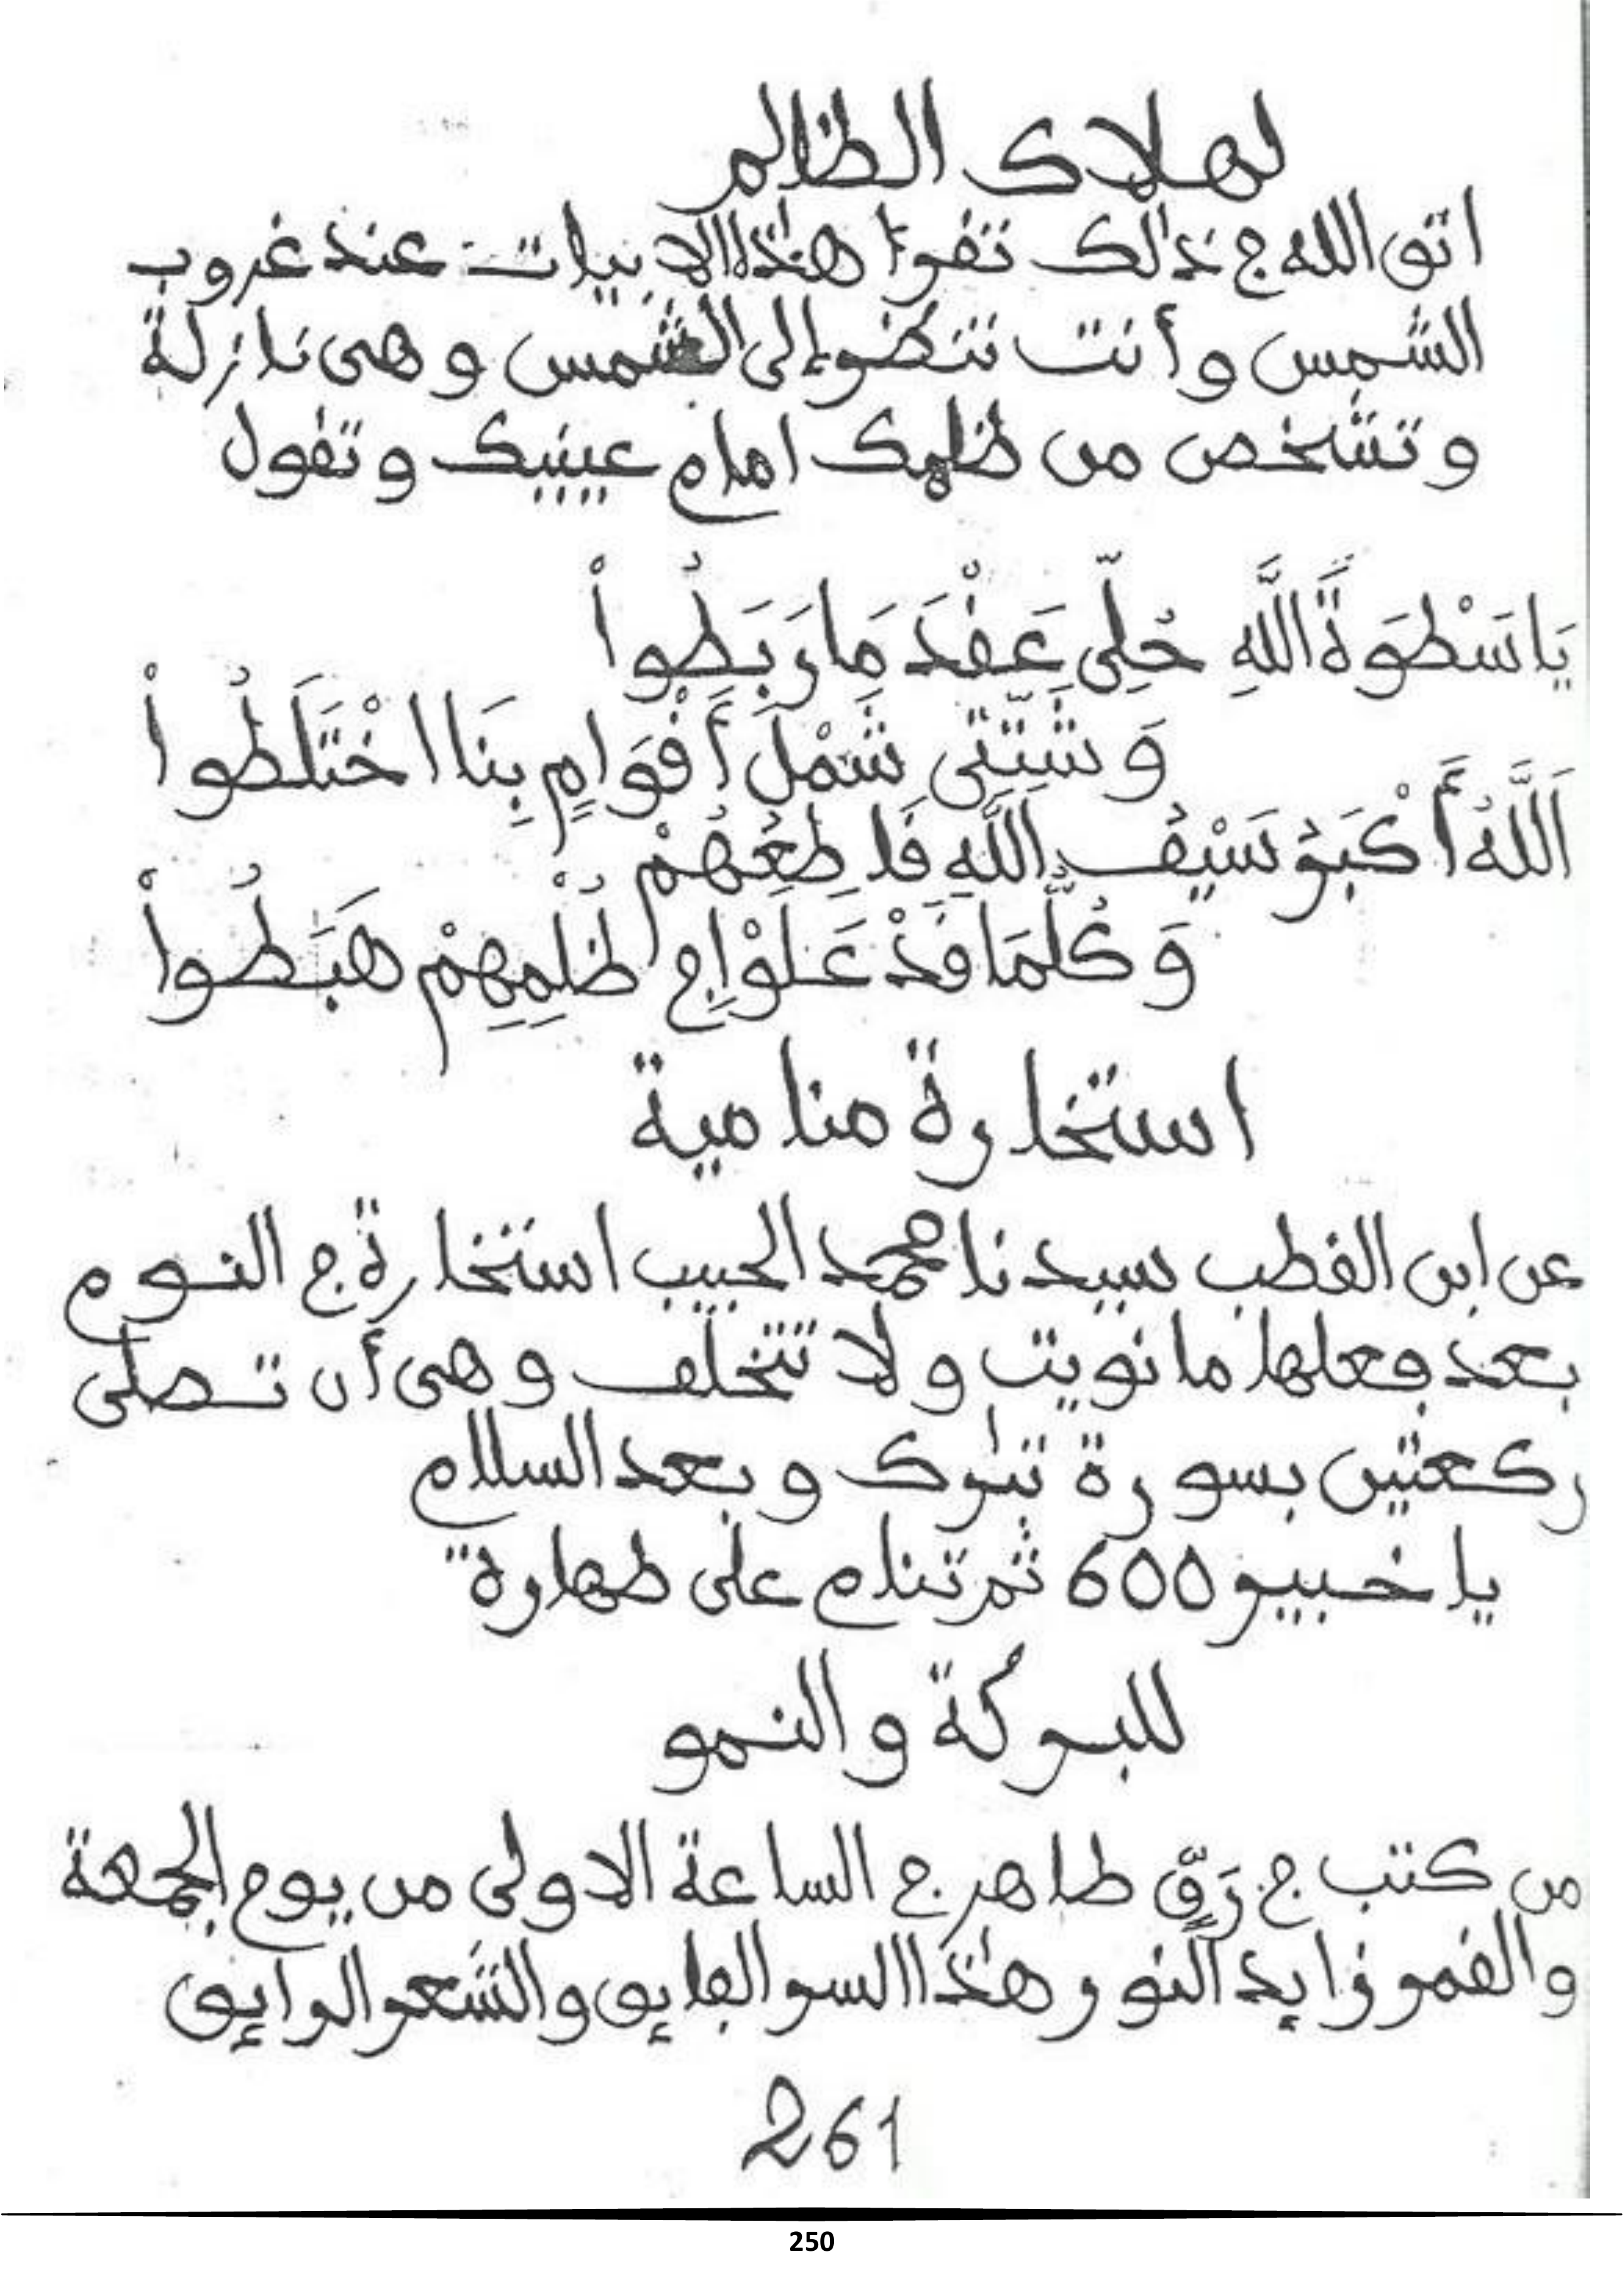 لهلاك الظالم
اتق الله في ذلك تقرأ هذا الابيات عند غروب
الشمس وأنت تنظر إلى الشمس وهى نازلة
وتشخص من ظلمك امام عينيك وتقول
يَا سَطْوَةَ اللَّهِ حُلِّى عَقْدَ مَا رَبَطُواْ
وَشَتِّتِى شَمْلَ أَقْوَامٍ بِنَا اخْتَلَطُواْ
اَللَّهُ أَكْبَرُ سَيْفُ اللَّهِ قَاطِعُهُمْ
وَكُلَّمَا قَدْ عَلَوْا فِي ظُلْمِهِمْ هَبَطُواْ
استخارة منامية
عن ابن القطب سيدنا محمد الحبيب استخارة في النوم
بعد فعلها ما نويت ولا تتخلف وهى أن تصلى
ركعتين بسورة تبٰرك وبعد السلام
يا خبير 600 ثم تنام على طهارة
للبركة والنمو
من كتب في رَقٍّ طاهر في الساعة الاولى من يوم الجمعة
والقمر زايد النور هٰذا السر الفايق والشعر الرايق
261
250